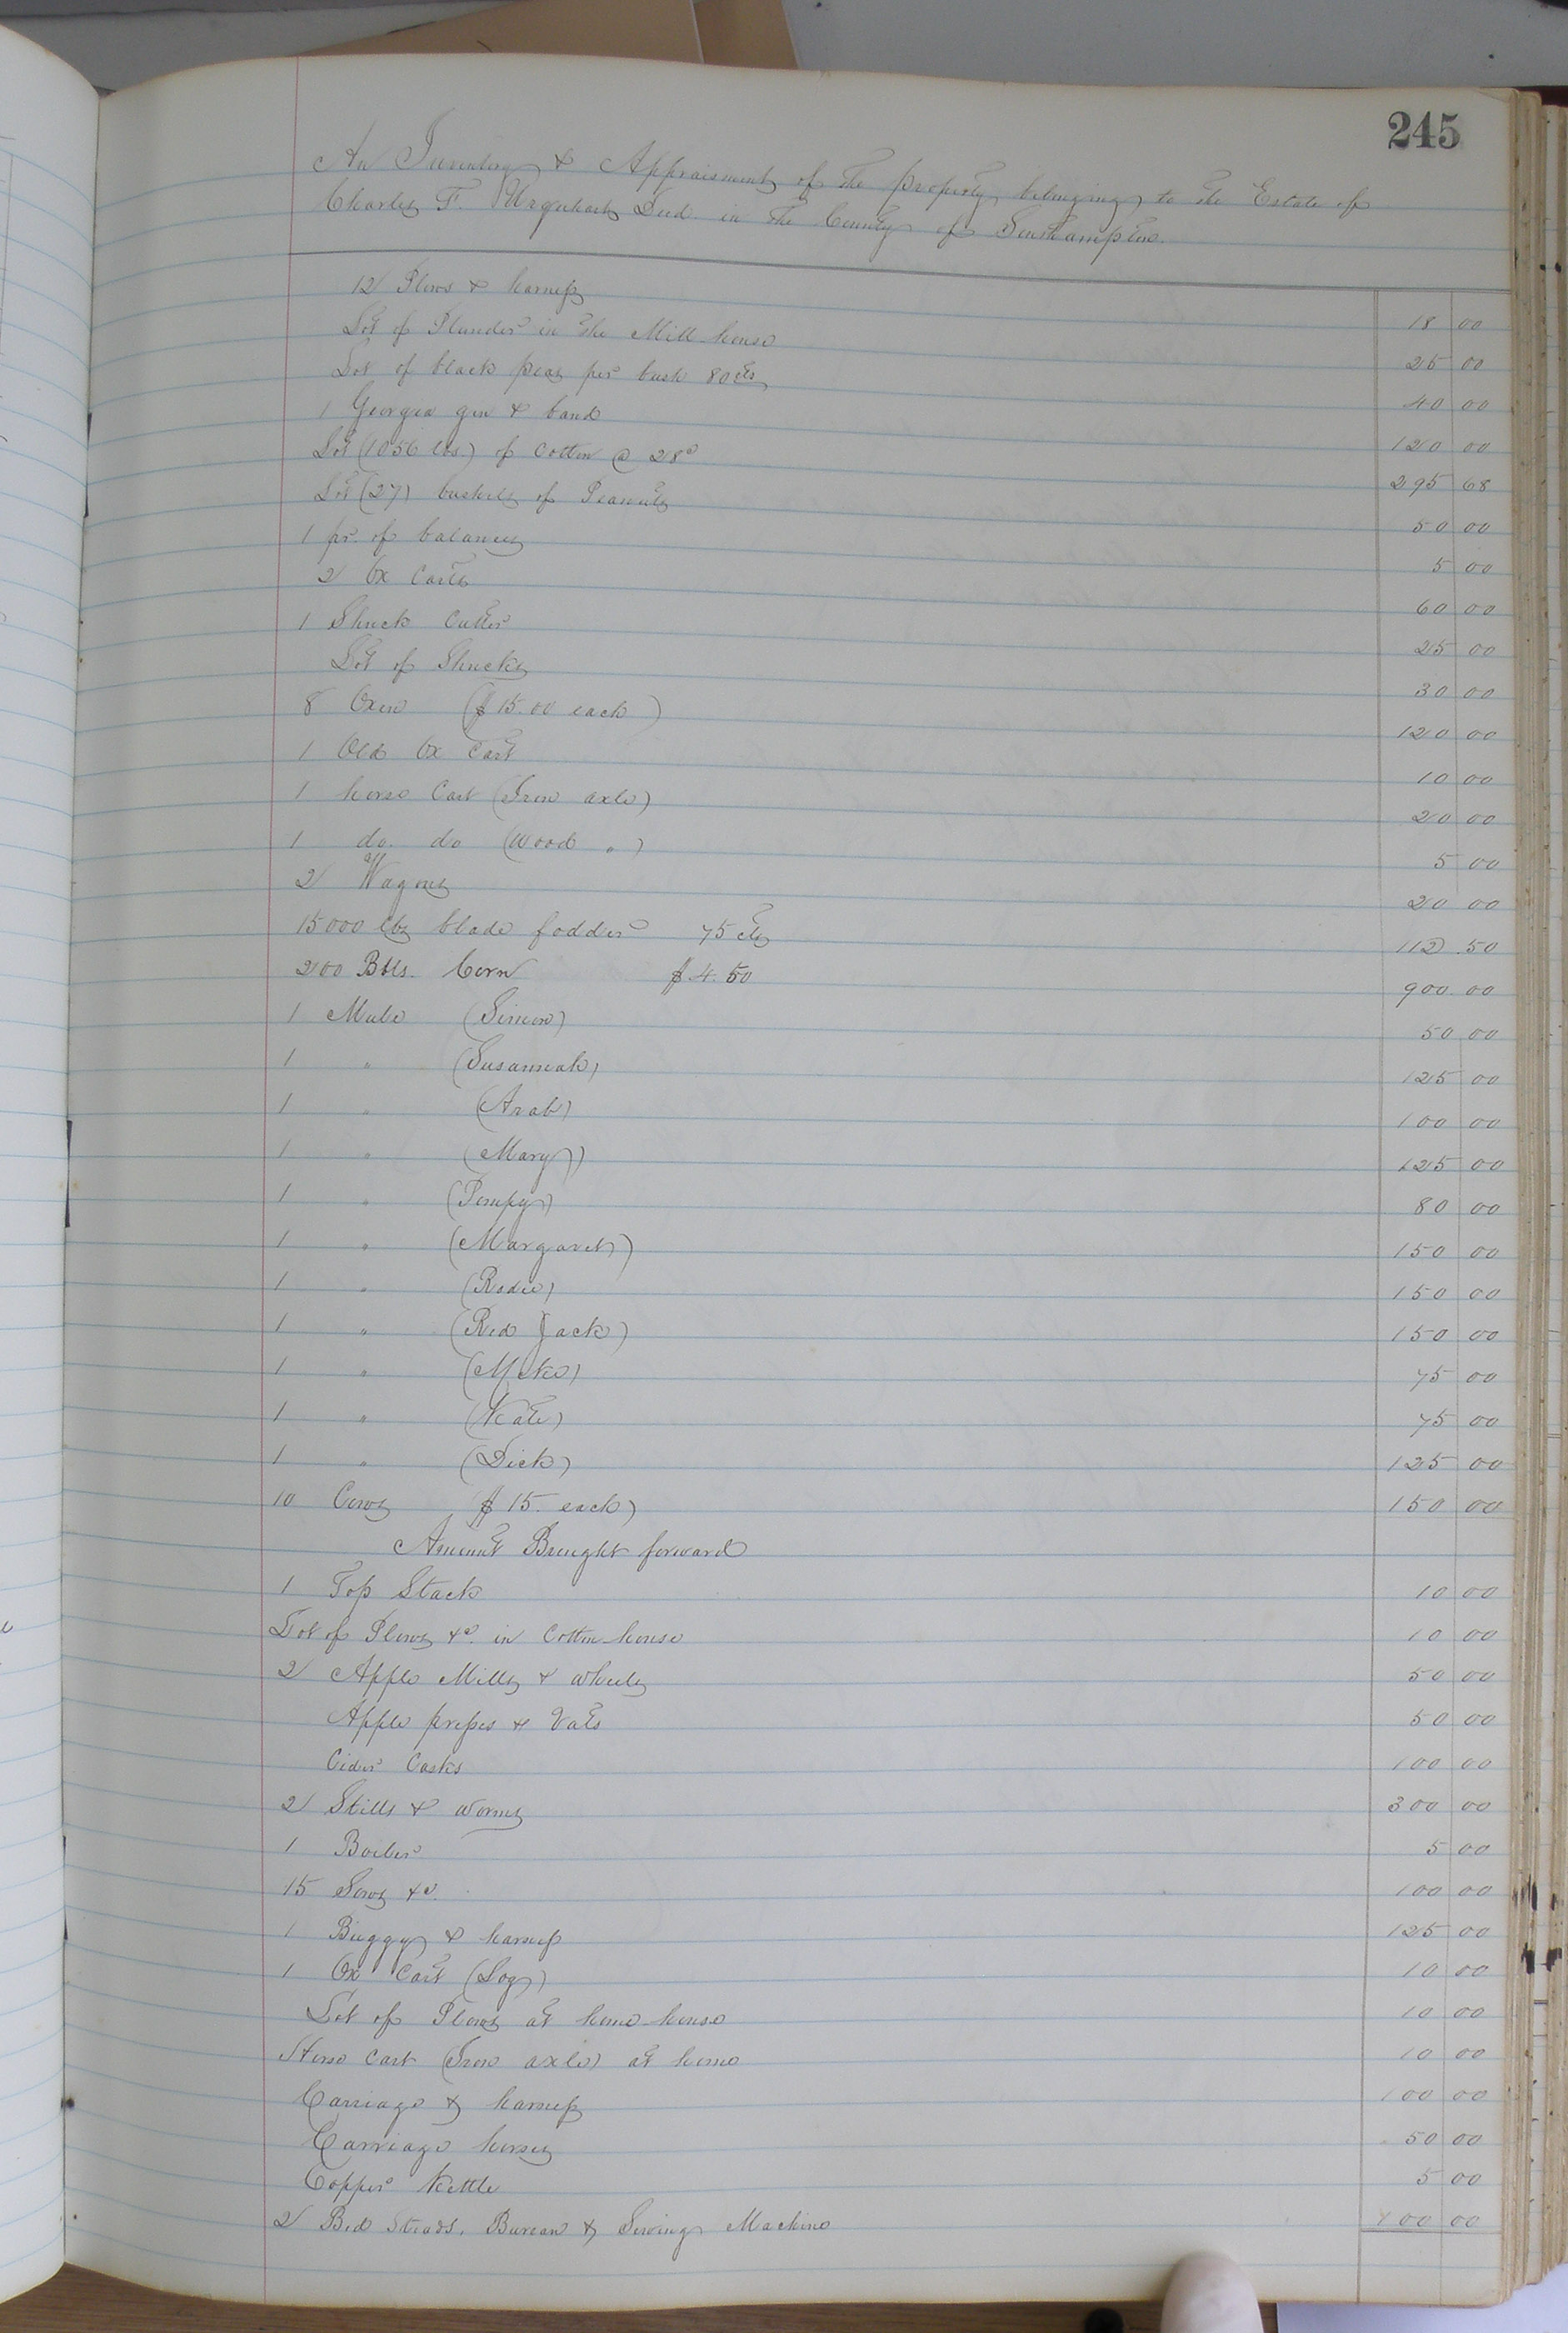 245
An Inventory & Appraisment of the property belonging to the Estate of
Charles F. Urquhart Decd. in the County of Southampton.
12 Plows & harness 18 00
Lot of Plunder in the Mill house 25 00
Lot of black peas per bush 80 cts 40 00
1 Georgia gin & band 120 00
Lot (1056 lbs.) of Cotton @ 28c 295 68
Lot (27) bushels of Peanuts 50 00
1 pr. of balances 5 00
2 Ox Carts 60 00
1 Shuck Cutter 25 00
Lot of Shucks 30 00
8 Oxen ($15.00 each) 120 00
1 Old Ox Cart 10 00
1 horse Cart (Iron axle) 20 00
1 do. do (Wood „) 5 00
2 Wagons 20 00
15000 lbs blade fodder 75 cts 112.50
200 Bbls. Corn $4.50 900.00
1 Mule (Simon) 50 00
1 " (Susannah) 125 00
1 " (Arab) 100 00
1 " (Mary) 125 00
1 " (Pompy) 80 00
1 " (Margaret) 150 00
1 " (Rodie) 150 00
1 " (Red Jack) 150 00
1 " (Mike) 75 00
1 " (Kate) 75 00
1 " (Dick) 125 00
10 Cows $15. each) 150 00
Amount Brought forward
1 Top Stack 10 00
Lot of Plows &c. in Cotton house 10 00
2 Apple Mills & wheels 50 00
Apple presses & Vats 50 00
Cider Casks 100 00
2 Stills & worms 300 00
1 Boiler 5 00
15 Sows &c. 100 00
1 Buggy & harness 125 00
1 Ox Cart (Log) 10 00
Lot of Plows at home house 10 00
Horse Cart (Iron axle) at home 10 00
Carriage & harness 100 00
Carriage horses 50 00
Copper Kettle 5 00
2 Bed Steads, Bureau & Sewing Machine 00 00